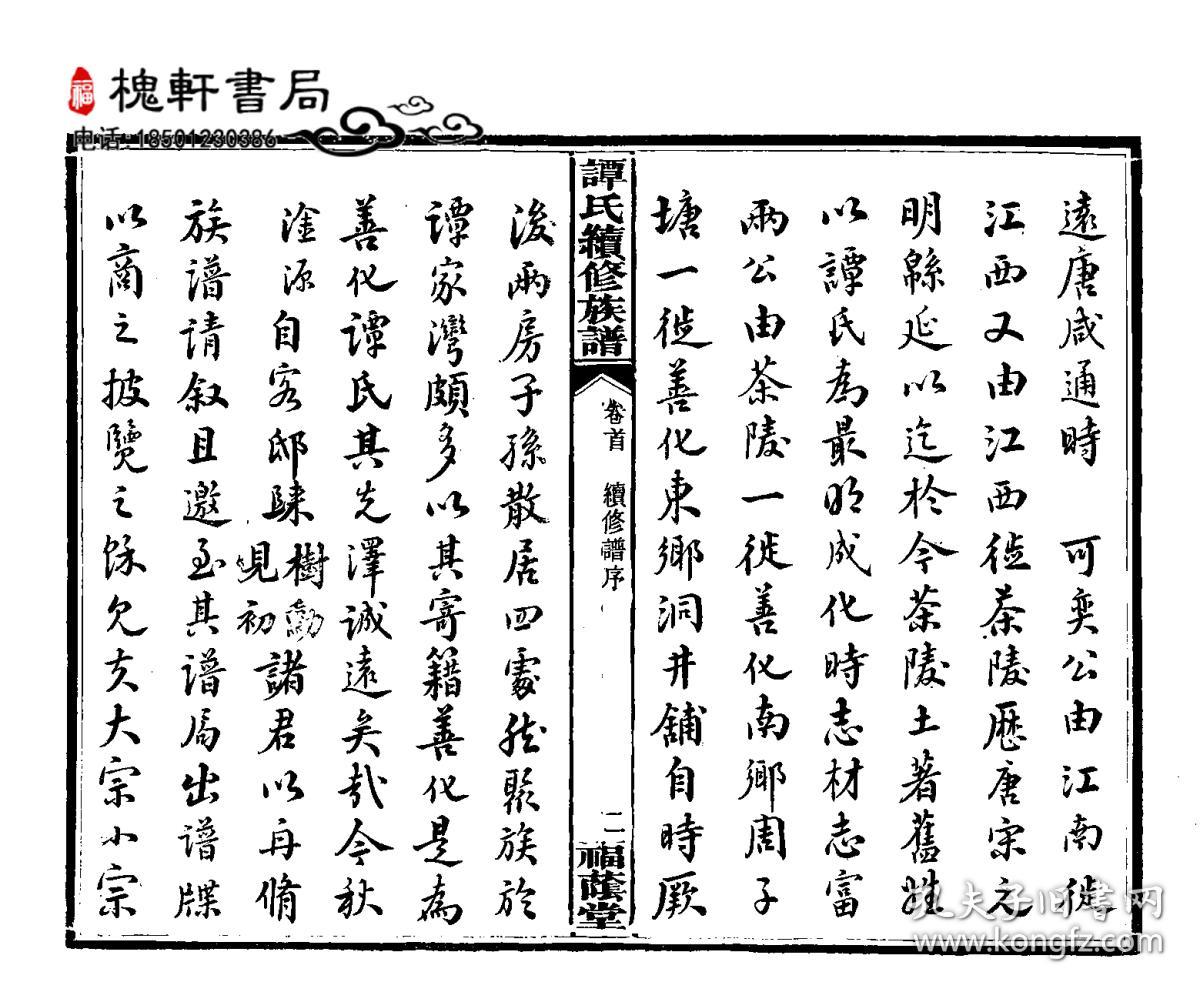 槐軒書局
电话:18501230386
遠唐咸通時 可奕公由江南徙
江西又由江西徙茶陵歷唐宋元
明緜延以迄於今茶陵土著舊姓
以譚氏為最明成化時志材志富
兩公由茶陵一徙善化南鄉周子
塘一徙善化東鄉洞井舖自時厥
譚氏續修族譜
卷首 續修譜序
二
福蔭堂
後兩房子孫散居四處然聚族於
譚家灣頗多以其寄籍善化是為
善化譚氏其先澤誠遠矣哉今秋
淦源自客邸歸樹勳硯初諸君以再脩
族譜請叙且邀至其譜局出譜牒
以商之披覽之餘見夫大宗小宗
孔夫子旧书网
www.kongfz.com